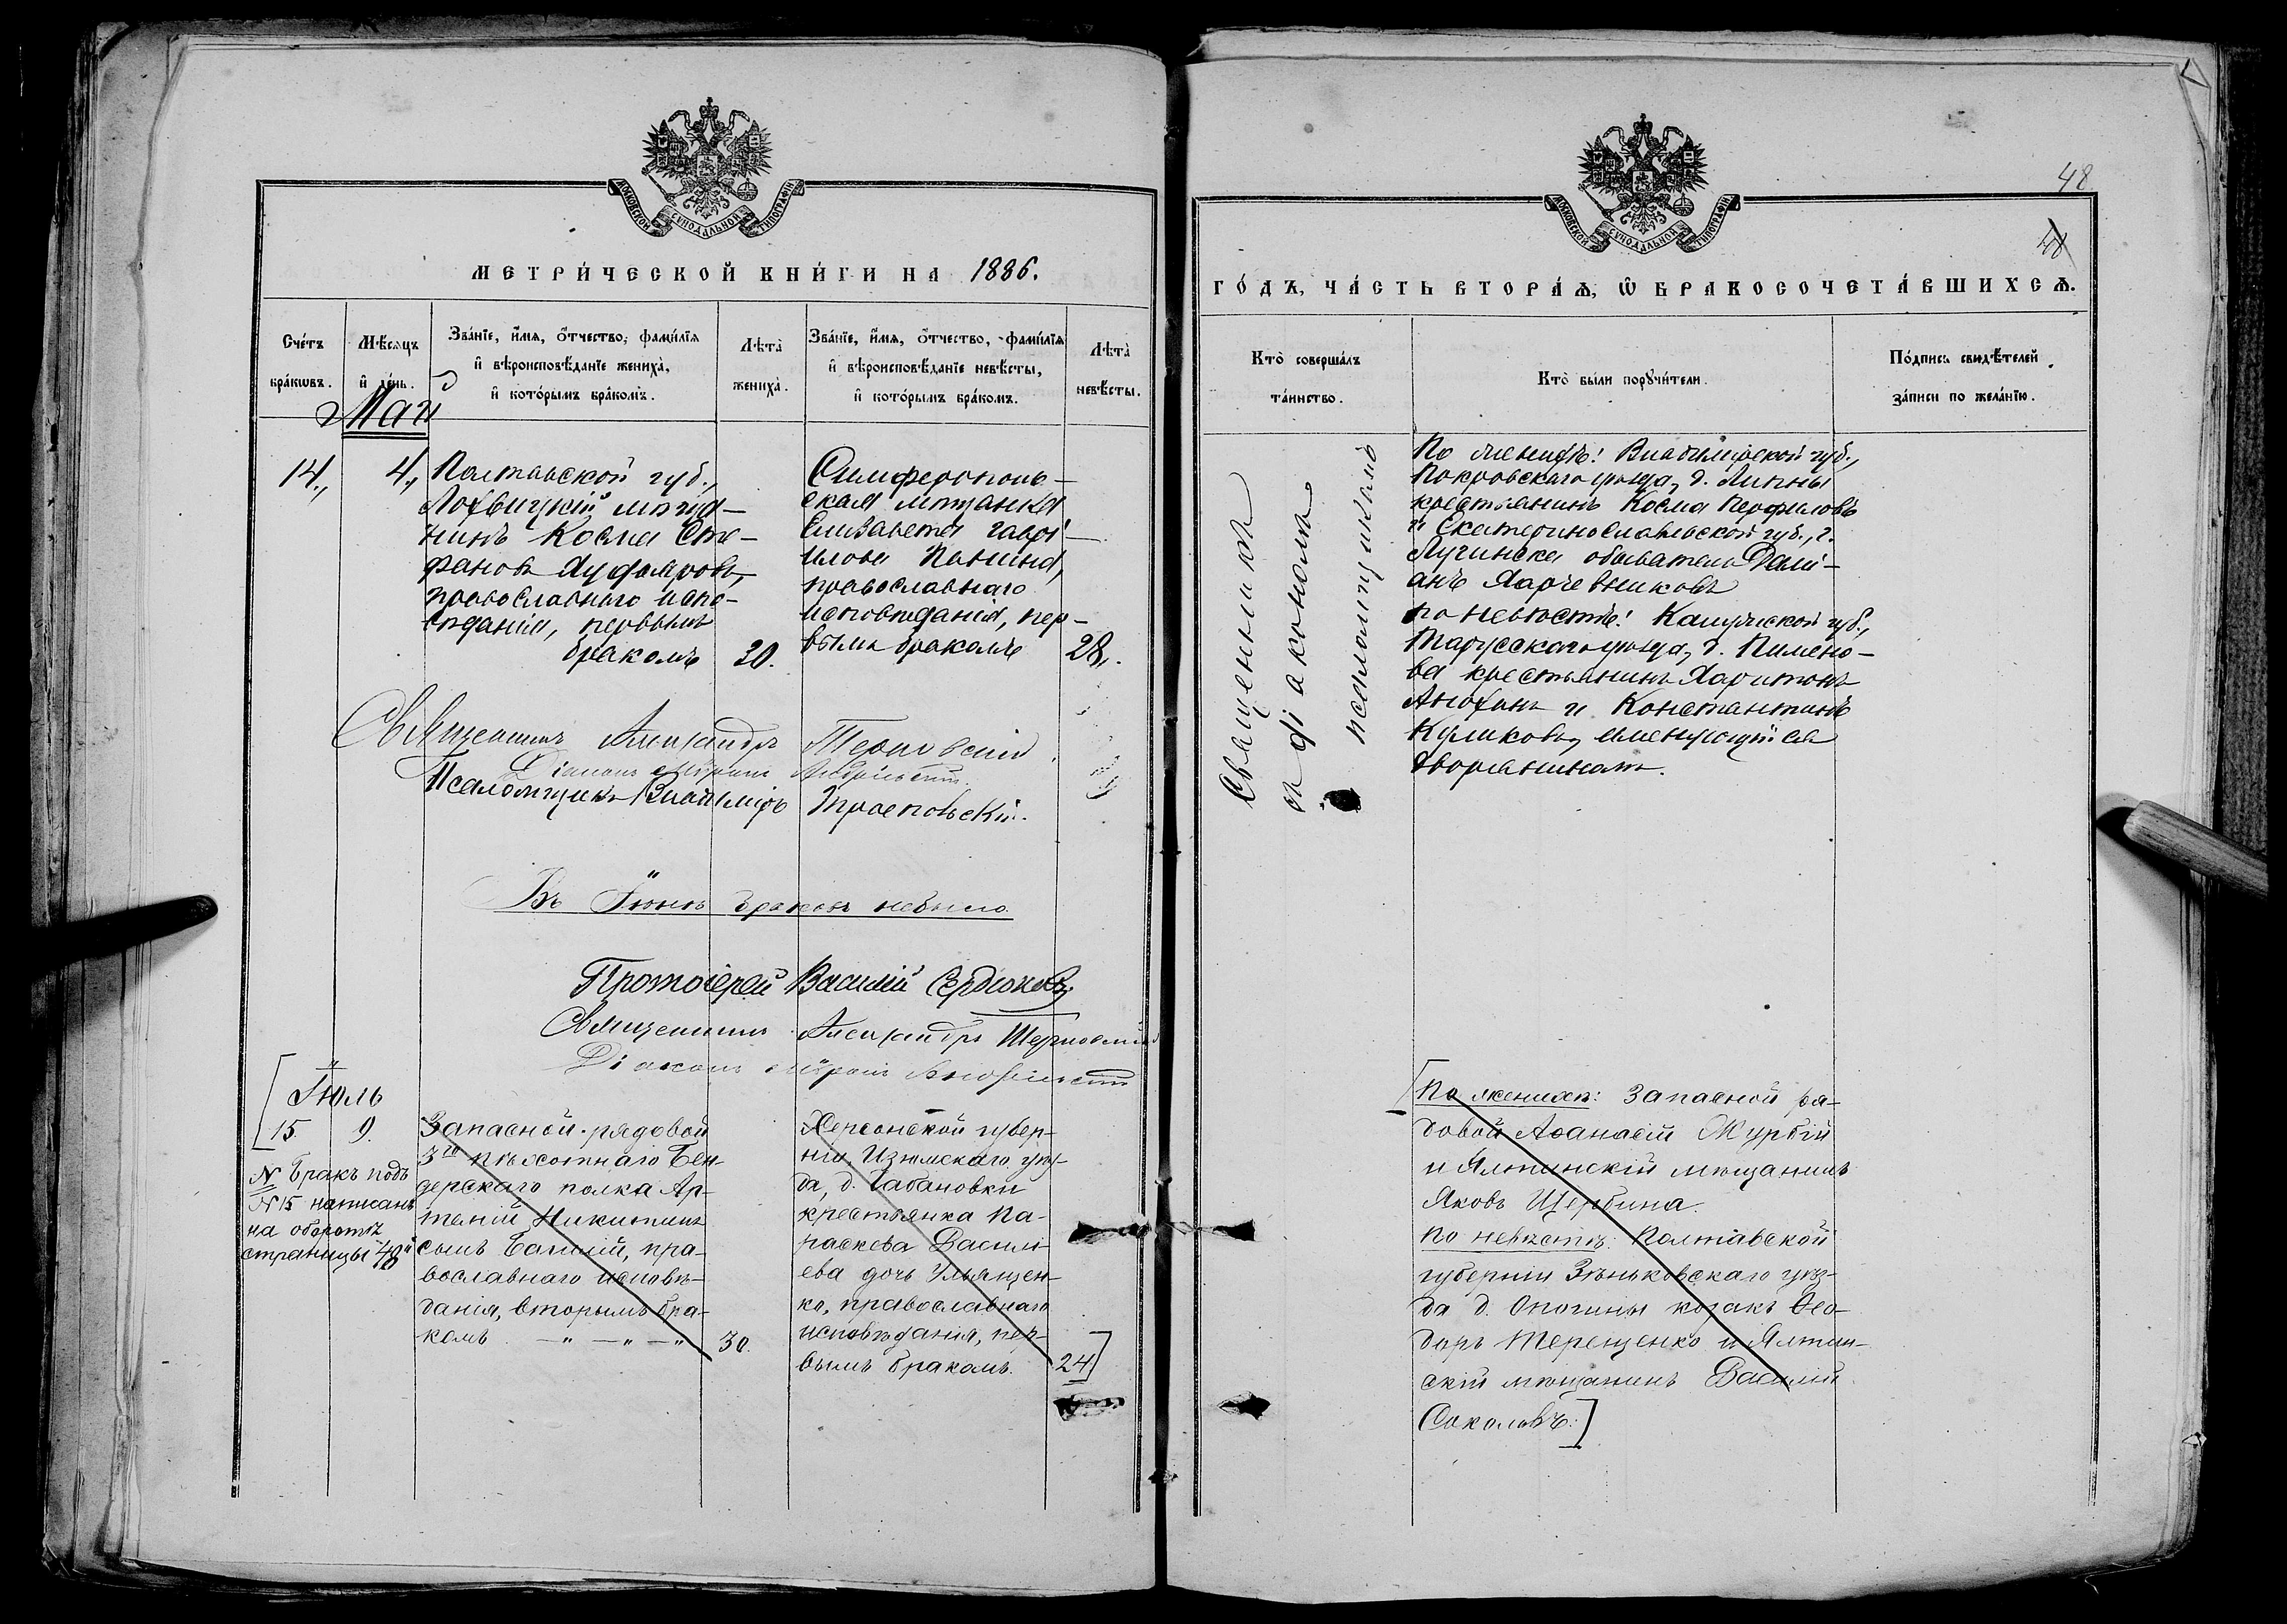 МОСКОВСКОЙ СѴНОДАЛЬНОЙ ТИПОГРАФІИ
МЕТРИ́ЧЕСКОЙ КНИ́ГИ НА 1886.
Сче́тъ бра́кѡвъ.
Мѣ́сяцъ и҆ де́нь.
Зва́нїе, и҆́мя, ѻ҆́тчество, фами́лїя
и҆ вѣроисповѣ́данїе жениха̀,
и҆ кото́рымъ бра́комъ.
Лѣта̀ жениха̀.
Зва́нїе, и҆́мя, ѻ҆́тчество, фами́лїя
и҆ вѣроисповѣ́данїе невѣ́сты,
и҆ кото́рымъ бра́комъ.
Лѣта̀ невѣ́сты.
Май
14., 4.,
Полтавской губ.,
Лохвицкій мѣща-
нинъ Косма Сте-
фановъ
православнаго испо-
вѣданія, первымъ
бракомъ
30.
Симферополь-
ская мѣщанка
Елизавета Гаврі-
илова Панина,
православнаго
исповѣданія, пер-
вымъ бракомъ
28.
Священникъ Александръ Терновскій
Діаконъ
Псаломщикъ Владиміръ Троеновскій.
Въ Іюнѣ браковъ небыло
Протоіерей Василій Сердюковъ
Священникъ Александръ Терновскій
Діаконъ
[Іюль
[15. 9.
N Бракъ подъ
N 15 написанъ
на оборотѣ
страницы "48"
Запасной рядовой
3го пѣхотнаго Бен-
дерскаго полка Ар-
темій Никитинъ
сынъ пра-
вославнаго исповѣ-
данія, вторымъ бра-
комъ — „ — „ — „
30.
Херсонской губер-
ніи, Изюмскаго уѣз-
да, д. Чабановки
крестьянка Па-
раскева Василі-
ева дочь Ульящен-
ко, православнаго
исповѣданія, пер-
вымъ бракомъ.
24]
48
48
МОСКОВСКОЙ СѴНОДАЛЬНОЙ ТИПОГРАФІИ
ГО́ДЪ, ЧА́СТЬ ВТОРА́Ѧ, Ѡ҆ БРАКОСОЧЕТА́ВШИХСѦ.
Кто̀ соверша́лъ
та́инство.
Кто̀ бы́ли порꙋчи́тели.
По́дпись свидѣ́телей
за́писи по жела́нїю.
Священникъ
съ діакономъ
и псаломщикомъ
По женихѣ: Владимірской губ.,
Покровскаго уѣзда, д. Липны
крестьянинъ Косма Перфиловъ
и Екатеринославской губ., г.
Луганска обыватель Дамі-
анъ Харчевниковъ
по невѣстѣ: Калужской губ.,
Тарусскаго уѣзда, д. Пимено-
ва крестьянинъ Харитонъ
Анохинъ и Константинъ
Куликовъ, именующійся
дворяниномъ.
[По женихѣ: Запасной ря-
довой Аѳанасій Журбій
и Ялтинскій мѣщанинъ
Яковъ Щербина.
По невѣстѣ: Полтавской
губерніи Зѣньковскаго уѣз-
да д. Опошны козакъ Ѳео-
доръ Терещенко и Ялтин-
скій мѣщанинъ Василій
Соколовъ.]